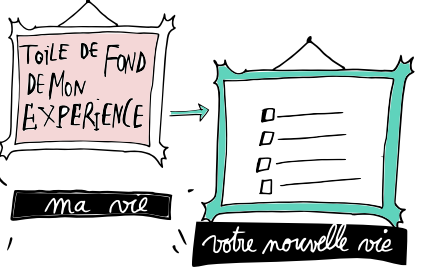 TOiLE DE FOND
DE MON
EXPERiENCE
ma vie
votre nouvelle vie